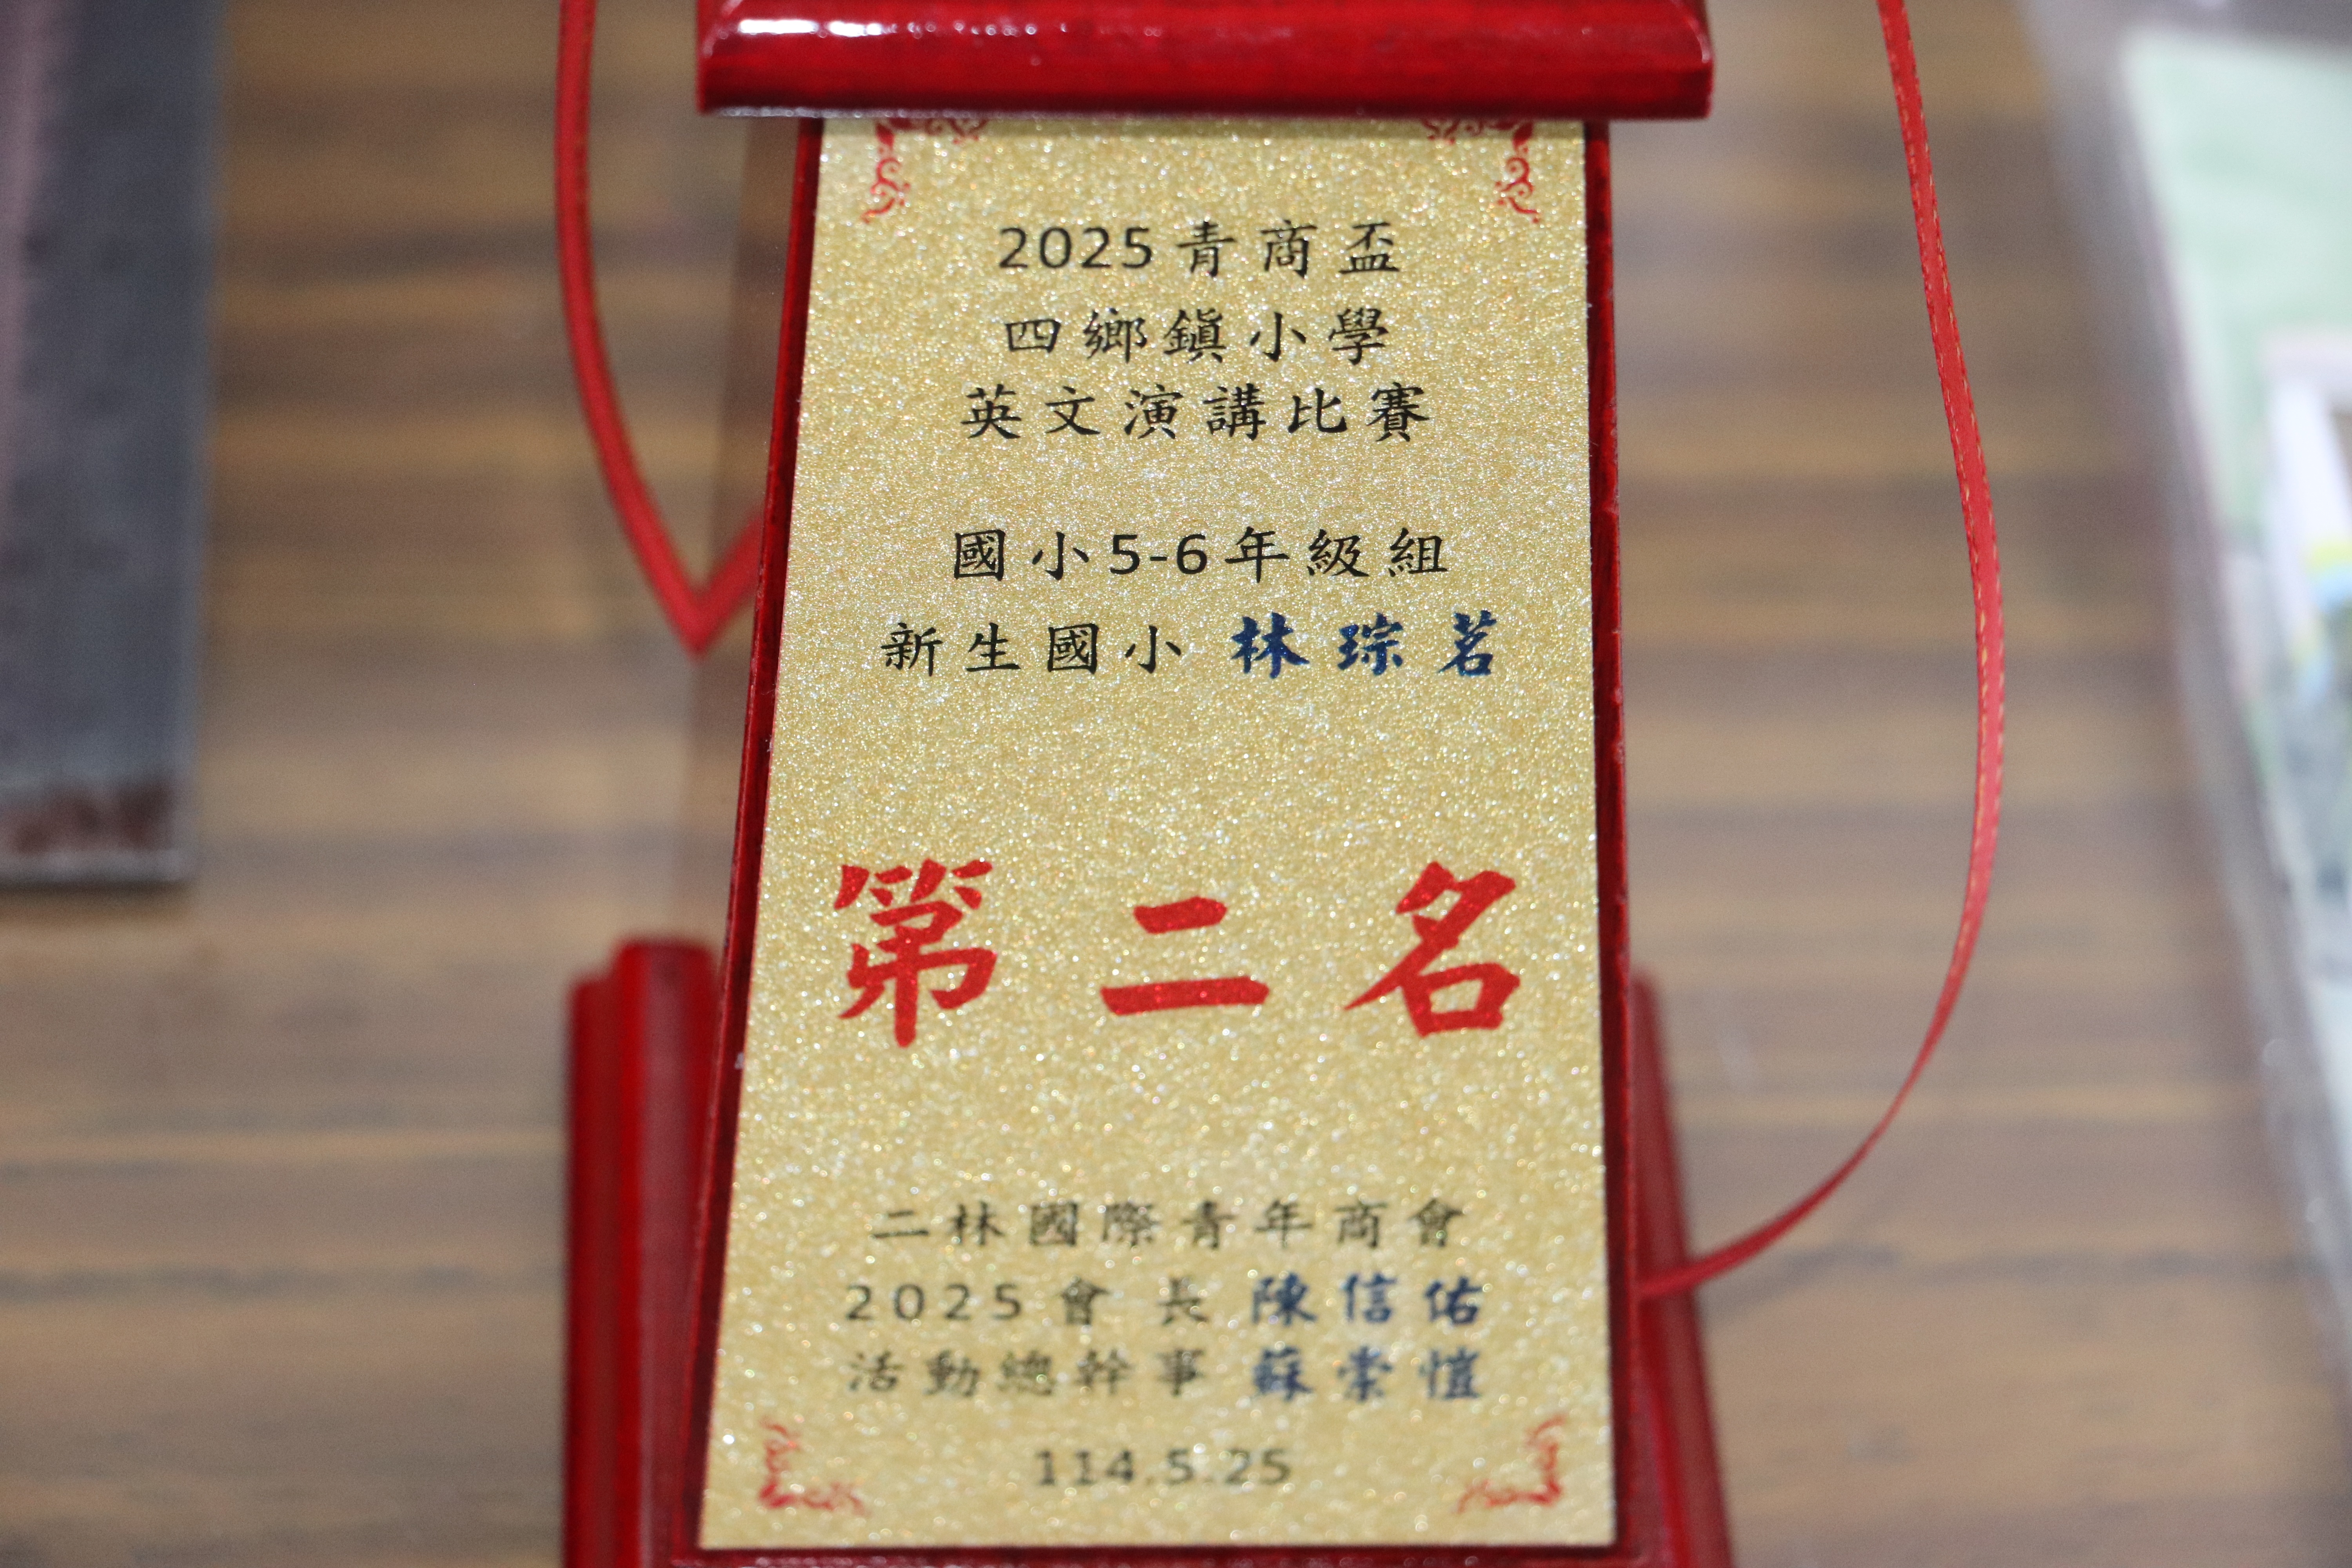 2025青商盃
四鄉鎮小學
英文演講比賽
國小5-6年級組
新生國小 林琮茗
第二名
二林國際青年商會
2025會長 陳信佑
活動總幹事 蘇崇愷
114.5.25